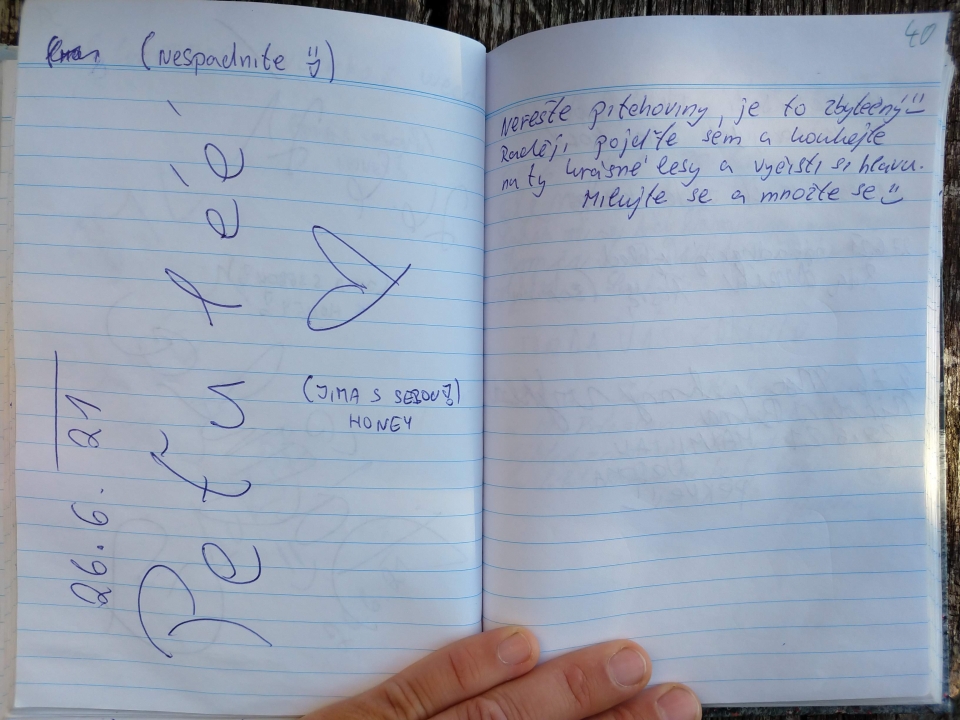 (Nespadnite ü)
26.6. 21
(JIMA S SEBOU)
HONEY
40
Neřešte pitchoviny, je to zbytečný
Raději pojďte sem a koukejte
na ty krásné lesy a vyčisti si hlavu.
Milujte se a množte se